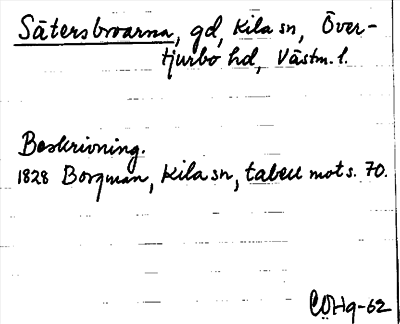 Sätersbroarna, gd, Kila sn, Över-
tjurbo hd, Västm. l.
Beskrivning.
1828 Borgman, Kila sn, tabell mot s. 70.
COHg-62